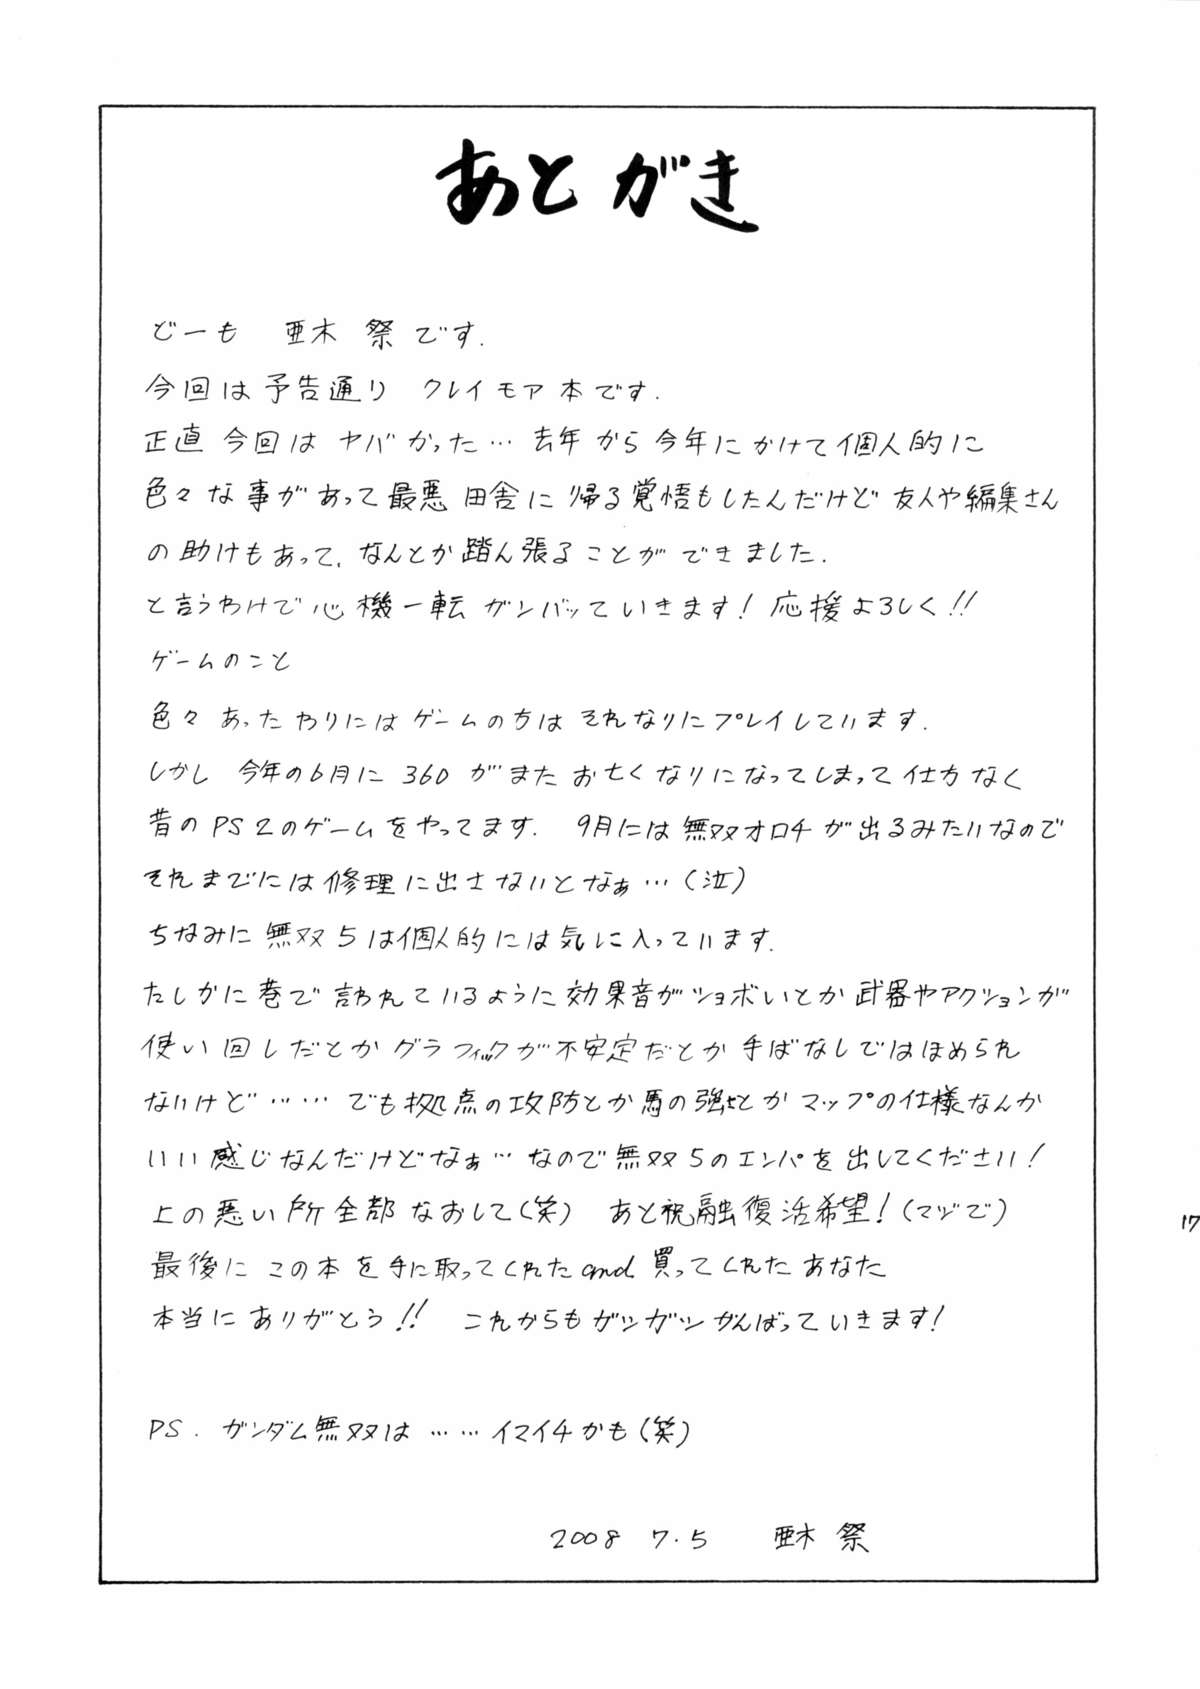 あとがき
どーも 亜木 祭です.
今回は予告通り クレイモア本です.
正直 今回は ヤバかった… 去年から今年にかけて個人的に
色々な事があって最悪 田舎に帰る覚悟もしたんだけど 友人や編集さん
の助けもあって、なんとか踏ん張ることができました.
と言うわけで心機一転 ガンバッていきます! 応援よろしく!!
ゲームのこと
色々あったわりにはゲームの方は それなりにプレイしています.
しかし 今年の6月に 360 がまた お亡くなりになってしまって仕方なく
昔のPS2のゲームをやってます. 9月には無双オロチが出るみたいなので
それまでには修理に出さないとなぁ…(泣)
ちなみに 無双5は個人的には気に入っています.
たしかに巷で言われているように効果音がショボいとか 武器やアクションが
使い回しだとか グラフィックが不安定だとか 手ばなしではほめられ
ないけど…… でも拠点の攻防とか馬の強さとかマップの仕様なんか
いい感じなんだけどなぁ… なので無双5のエンパを出してください!
上の悪い所全部なおして(笑) あと祝融復活希望!(マヂで)
最後に この本を手に取ってくれた and 買ってくれた あなた
本当にありがとう!! これからもガツガツがんばっていきます!
PS. ガンダム無双は……イマイチかも(笑)
2008 7.5 亜木 祭
17